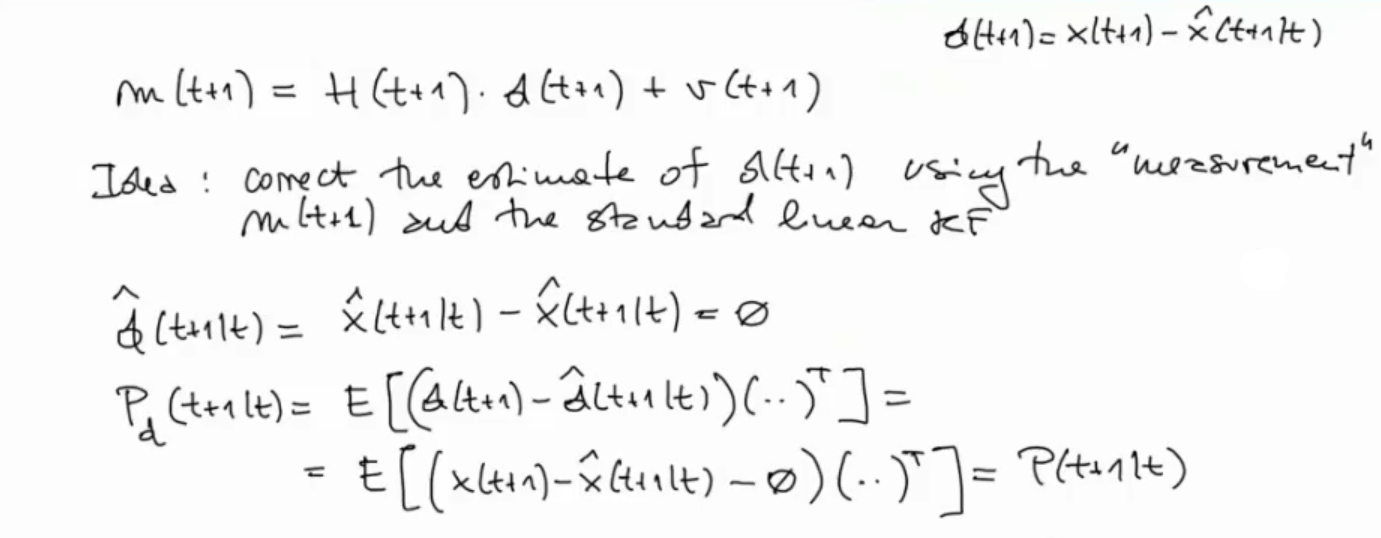 d(t+1) = x(t+1) - x̂(t+1|t)
m(t+1) = H(t+1) · d(t+1) + v(t+1)
Idea : correct the estimate of d(t+1) using the "measurement"
m(t+1) and the standard linear KF
d̂(t+1|t) = x̂(t+1|t) - x̂(t+1|t) = ∅
P_d(t+1|t) = E[(d(t+1) - d̂(t+1|t))(··)ᵀ] =
= E[(x(t+1) - x̂(t+1|t) - ∅)(··)ᵀ] = P(t+1|t)